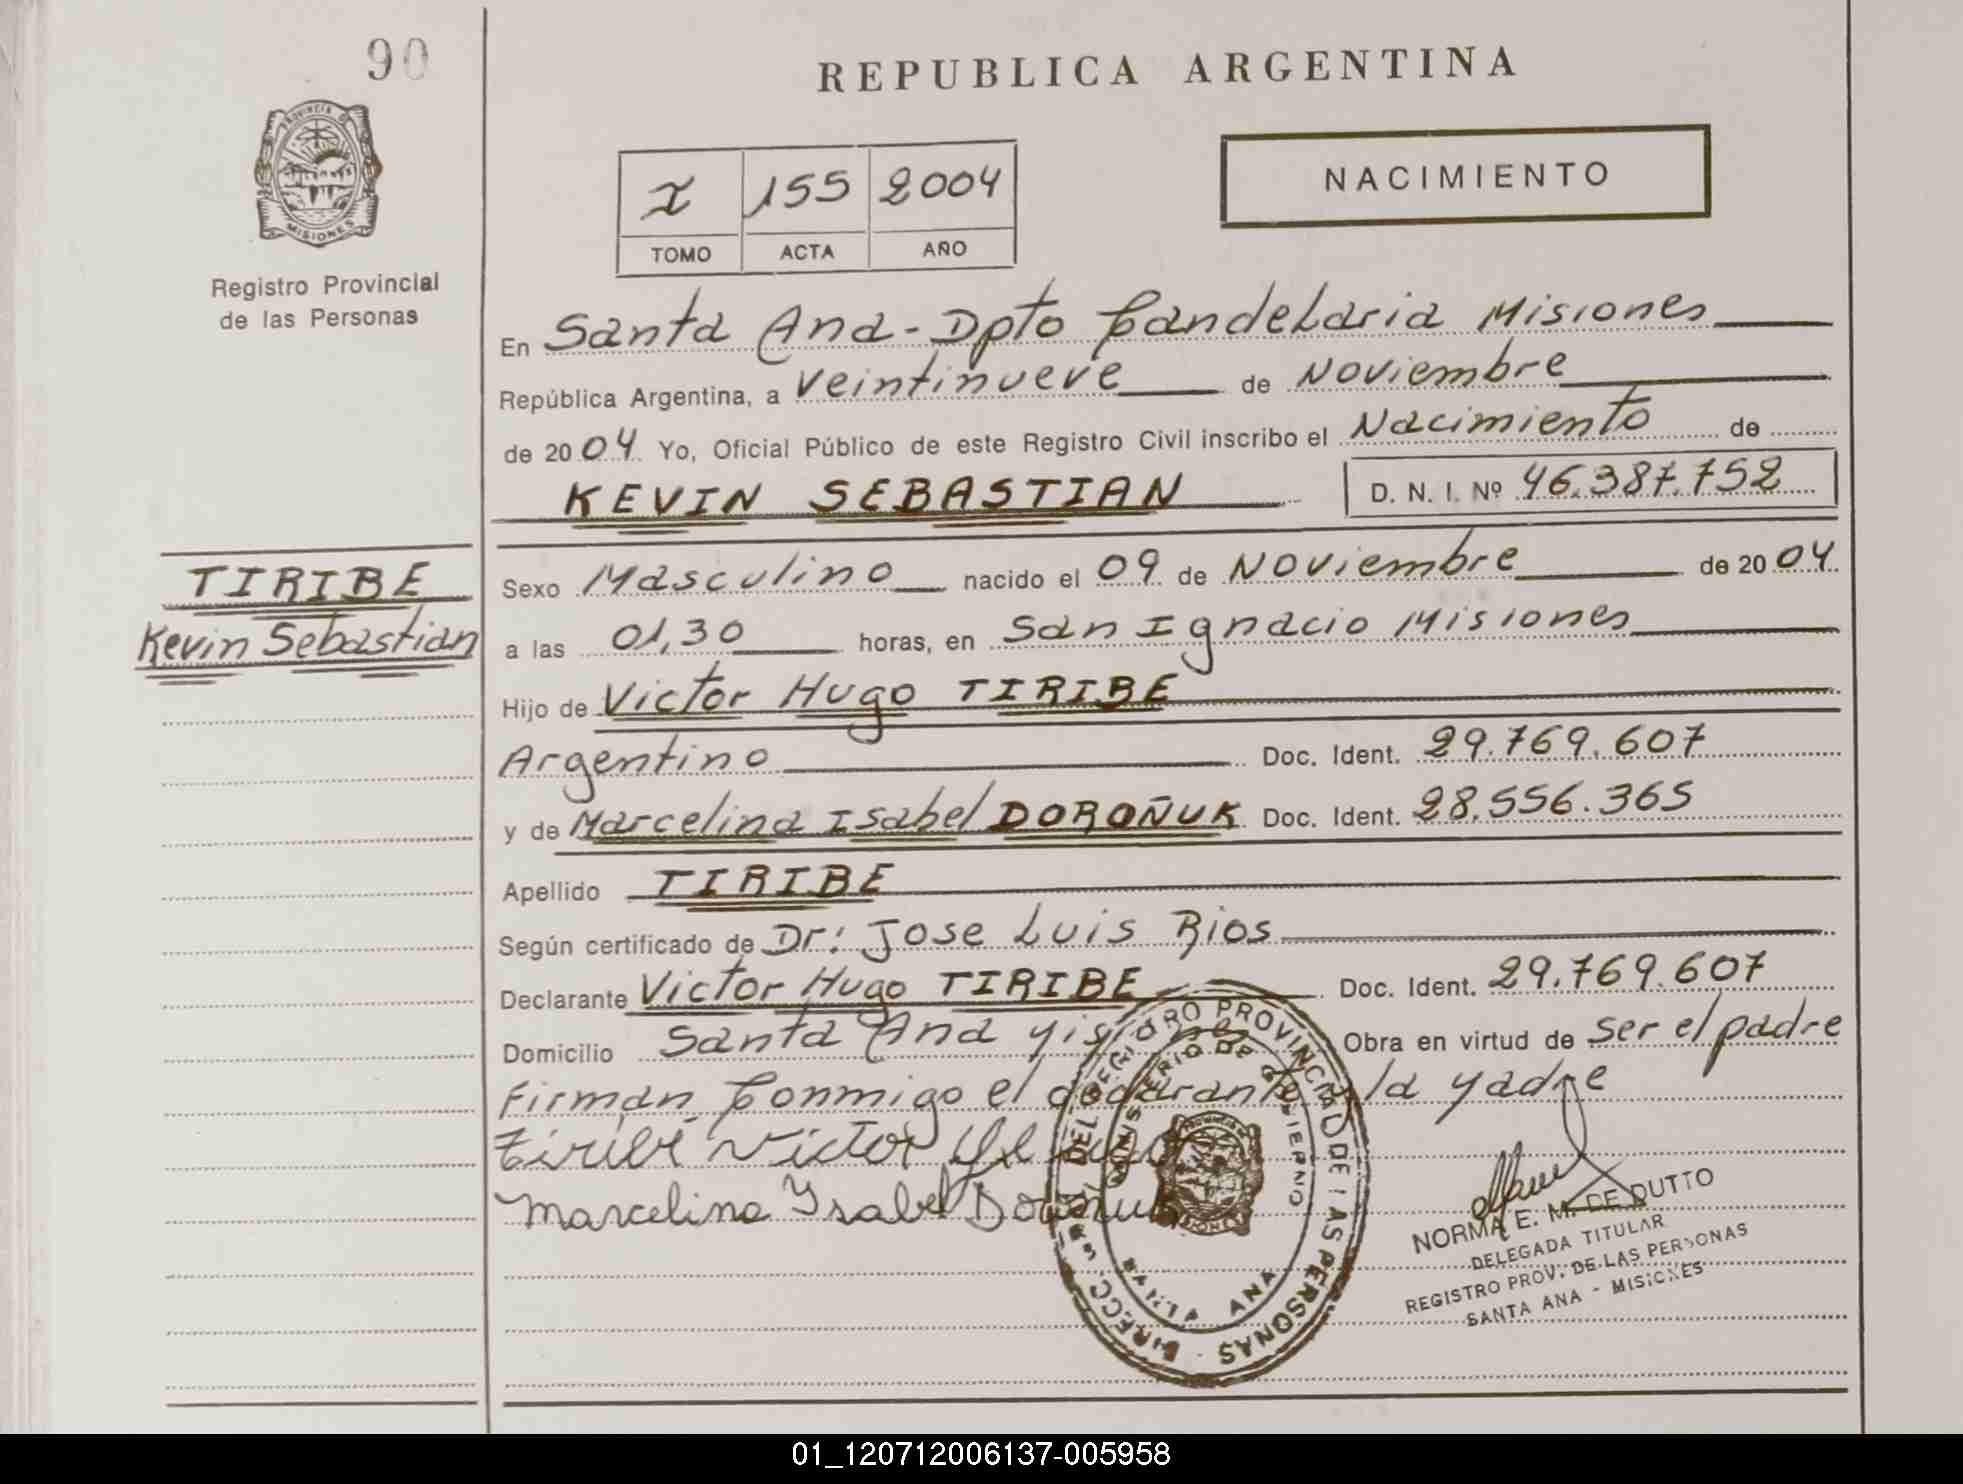 90
REPUBLICA ARGENTINA
PROVINCIA DE
MISIONES
Registro Provincial
de las Personas
I 155 2004
TOMO ACTA AÑO
NACIMIENTO
En Santa Ana - Dpto Candelaria Misiones
República Argentina, a Veintinueve de Noviembre
de 2004 Yo, Oficial Público de este Registro Civil inscribo el Nacimiento de
KEVIN SEBASTIAN D. N. I. Nº 46.387.752
TIRIBE
Kevin Sebastian
Sexo Masculino nacido el 09 de Noviembre de 2004
a las 01,30 horas, en San Ignacio Misiones
Hijo de Victor Hugo TIRIBE
Argentino Doc. Ident. 29.769.607
y de Marcelina Isabel DOROÑUK Doc. Ident. 28.556.365
Apellido TIRIBE
Según certificado de Dr: Jose Luis Rios
Declarante Victor Hugo TIRIBE Doc. Ident. 29.769.607
Domicilio Santa Ana Misiones Obra en virtud de ser el padre
Firman Conmigo el declarante la Madre
Tiribe Victor Hugo
Marcelina Ysabel Doroñuk
DIRECC. GRAL. DEL REGISTRO PROVINCIAL DE LAS PERSONAS
MINISTERIO DE GOBIERNO
SANTA ANA
NORMA E. M. DE DUTTO
DELEGADA TITULAR
REGISTRO PROV. DE LAS PERSONAS
SANTA ANA - MISIONES
01_120712006137-005958